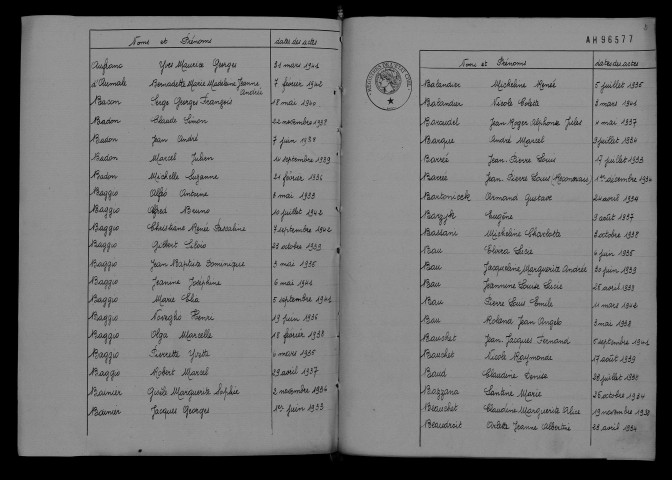 Noms et Prénoms dates des actes
Aufranc Yves Maurice Georges 31 mars 1941
d'Aumale Bernadette Marie Madeleine Jeanne Andrée 7 février 1942
Bacon Serge Georges François 18 mai 1940
Badon Claude Simon 22 novembre 1938
Badon Jean André 7 juin 1934
Badon Marcel Julien 10 septembre 1939
Badon Michelle Suzanne 21 février 1936
Baggio Antoine 8 mai 1933
Baggio Alfred Bruno 10 juillet 1942
Baggio Christiane Renée Pascaline 7 septembre 1942
Baggio Gilbert Silvio 23 octobre 1933
Baggio Jean Baptiste Dominique 3 mai 1935
Baggio Jeanne Joséphine 6 mai 1941
Baggio Marie 5 septembre 1941
Baggio Henri 19 juin 1936
Baggio Olga Marcelle 18 février 1938
Baggio Pierrette Yvette 4 mars 1935
Baggio Robert Marcel 29 avril 1937
Bainier Gisèle Marguerite Sophie 2 novembre 1936
Bainier Jacques Georges 1er juin 1933
AH96577
Noms et Prénoms dates des actes
Balandier Micheline Renée 5 juillet 1935
Balandier Nicole Colette 2 mars 1941
Jean Roger Alphonse Jules 4 mai 1937
Barque André Marcel 3 juillet 1934
Barrée Jean Pierre Louis 17 juillet 1933
Barrée Jean Pierre Louis 1er décembre 1934
Bartoniczek Armand Gustave 24 avril 1934
Barzyk Eugène 3 août 1937
Bassani Micheline Charlotte 8 octobre 1938
Bau Elvira 4 juin 1935
Bau Jacqueline Marguerite Andrée 30 juin 1933
Bau Jeannine Louise 28 avril 1938
Bau Pierre Louis Emile 11 mars 1942
Bau Rolana Jean Angelo 3 mai 1938
Bauchet Jean Jacques Fernand 5 septembre 1942
Bauchet Nicole Raymonde 17 août 1939
Baud Claudine Denise 28 juillet 1932
Bazzana Santine Marie 26 octobre 1934
Beauchet Claudine Marguerite Aline 19 novembre 1938
Beaudroit Arlette Jeanne Albertine 28 avril 1934